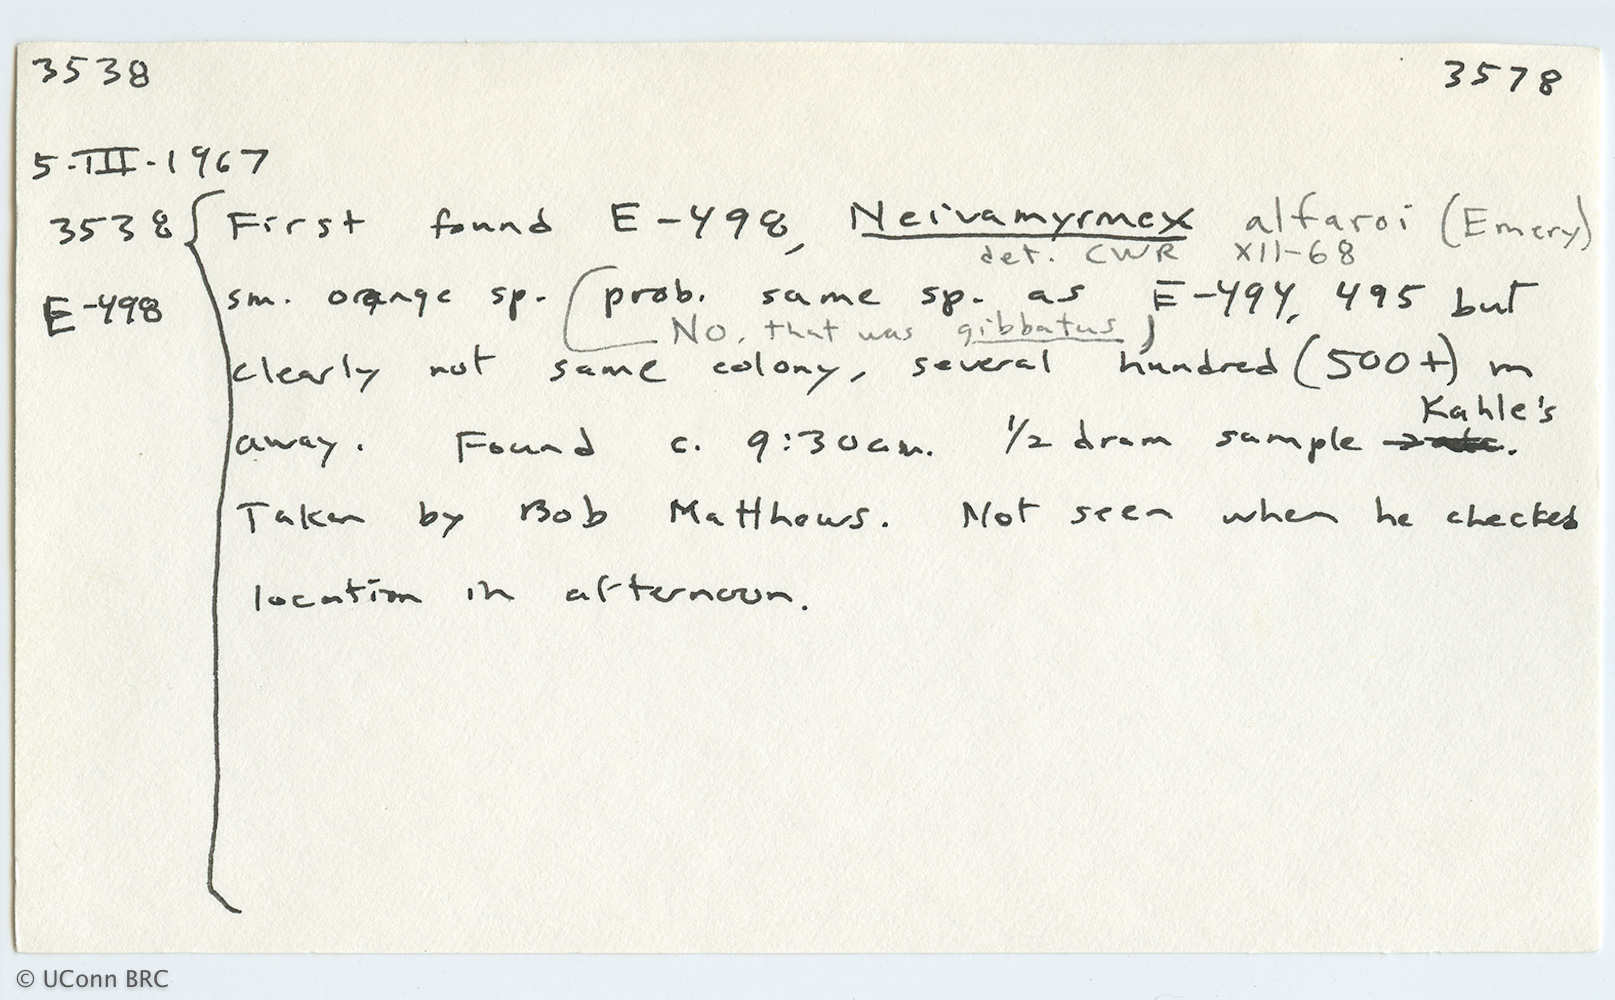 3538 3578
5-III-1967
3538 First found E-498, Neivamyrmex alfaroi (Emery)
det. CWR XII-68
E-498 sm. orange sp. (prob. same sp. as E-494, 495 but
No, that was gibbatus)
clearly not same colony, several hundred (500+) m
Kahle's
away. Found c. 9:30am. 1/2 dram sample .
Taken by Bob Matthews. Not seen when he checked
location in afternoon.
© UConn BRC